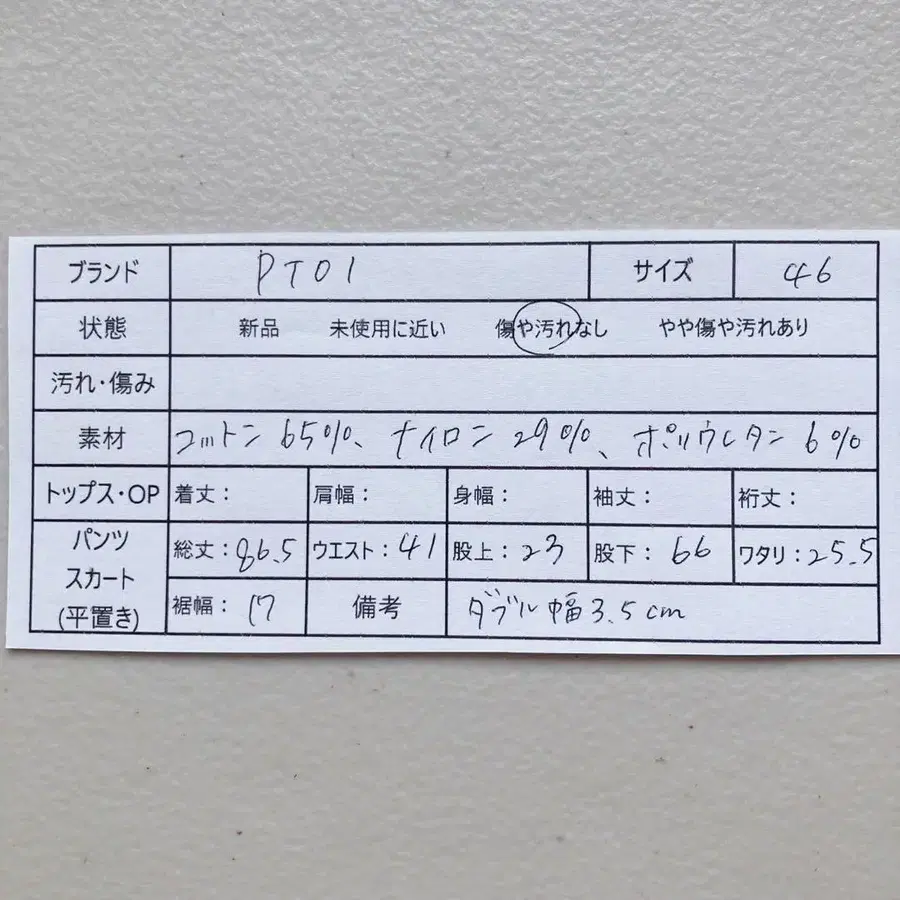 ブランド PT01 サイズ 46
状態 新品 未使用に近い 傷や汚れなし やや傷や汚れあり
汚れ・傷み
素材 コットン 65%、ナイロン 29%、ポリウレタン 6%
トップス・OP 着丈： 肩幅： 身幅： 袖丈： 裄丈：
パンツ
スカート
(平置き)
総丈：86.5 ウエスト：41 股上：23 股下：66 ワタリ：25.5
裾幅：17 備考 ダブル幅3.5cm